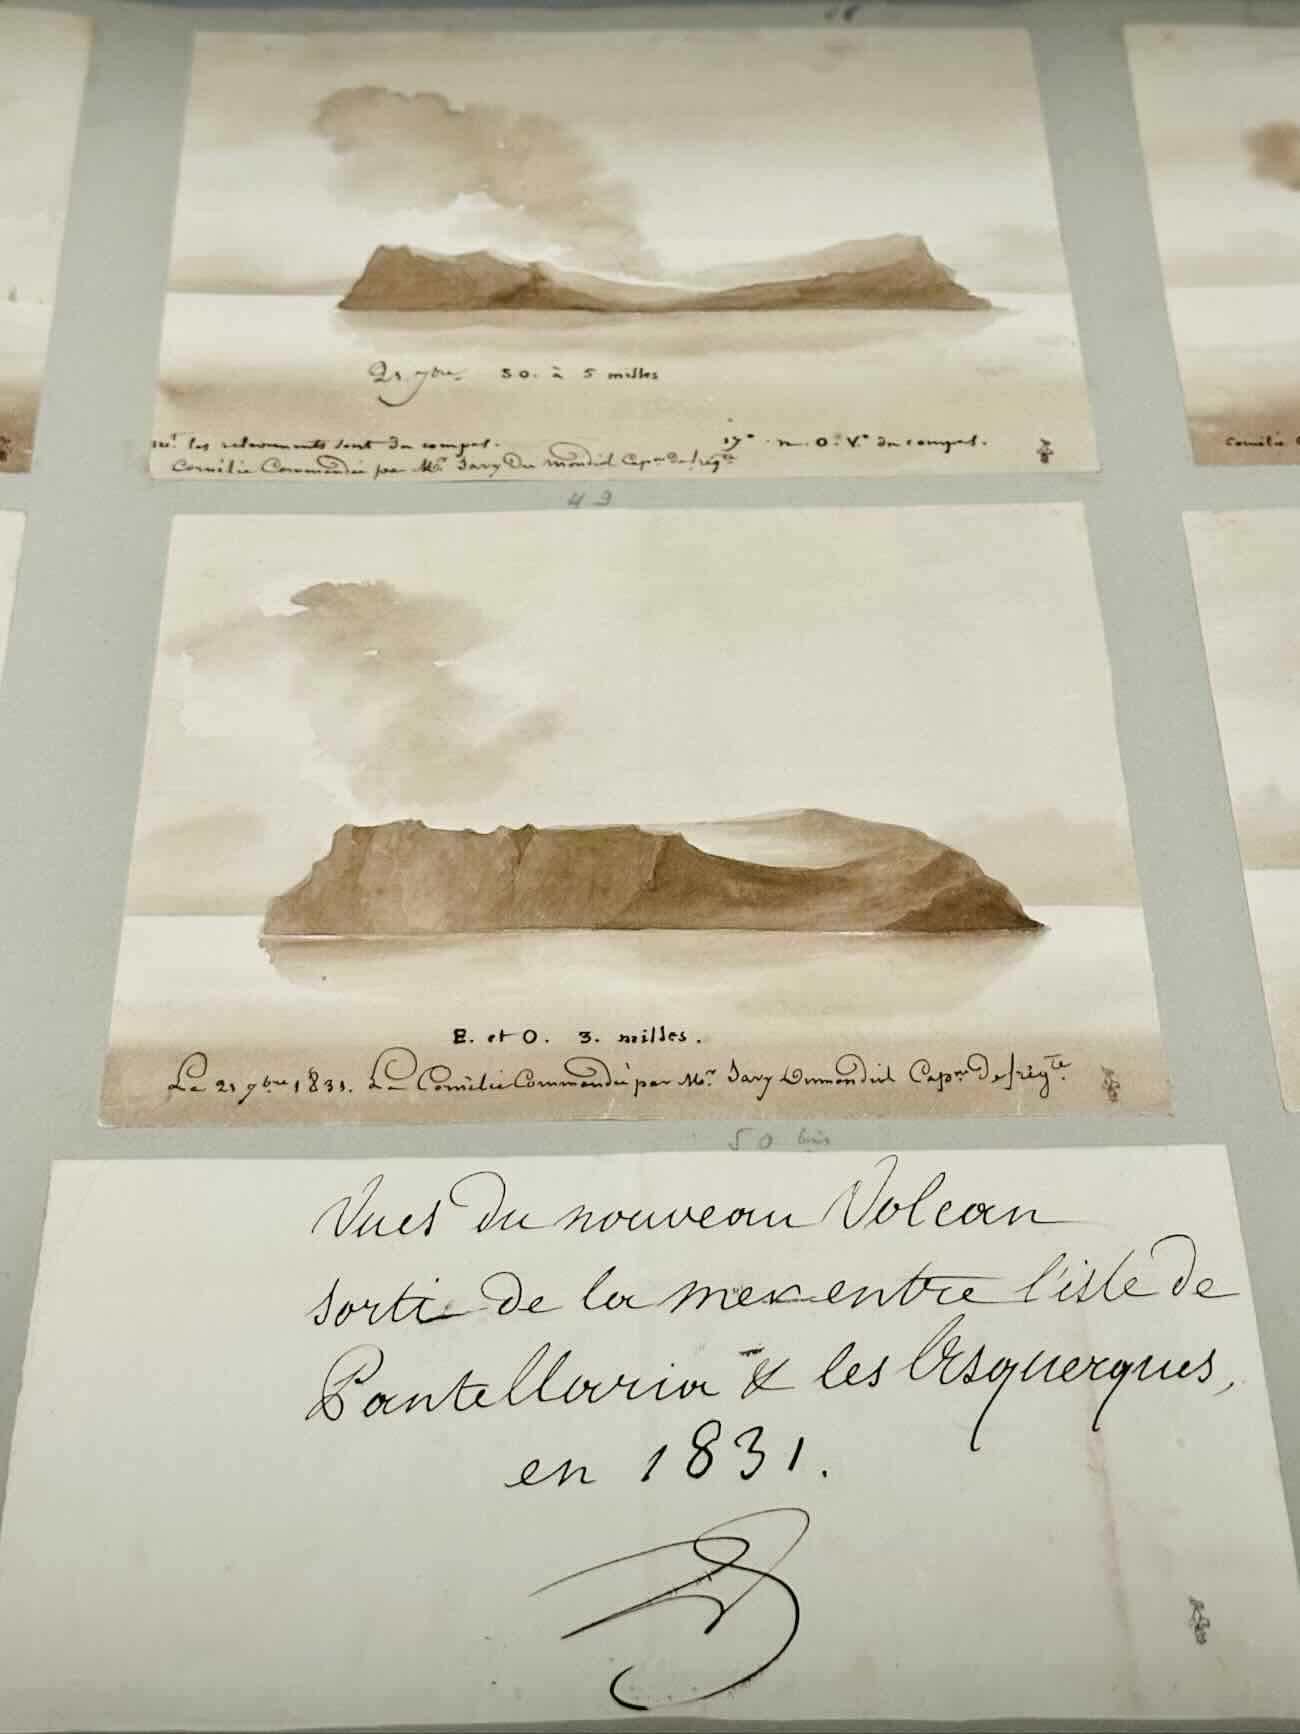 21 9bre S.O. à 5 milles
les relevements sont du compas. 17° N.O. V.on du compas.
Cornélie Commandée par Mr. Savy Du Mondiol Capne de frégte
49
E. et O. 3. milles.
Le 21 9bre 1831. La Cornélie Commandée par Mr Savy Dumondiol Capne De frégte
50 bis
Vues du nouveau Volcan
sorti de la mer entre l'isle de
Pantellaria & les Esquerques,
en 1831.